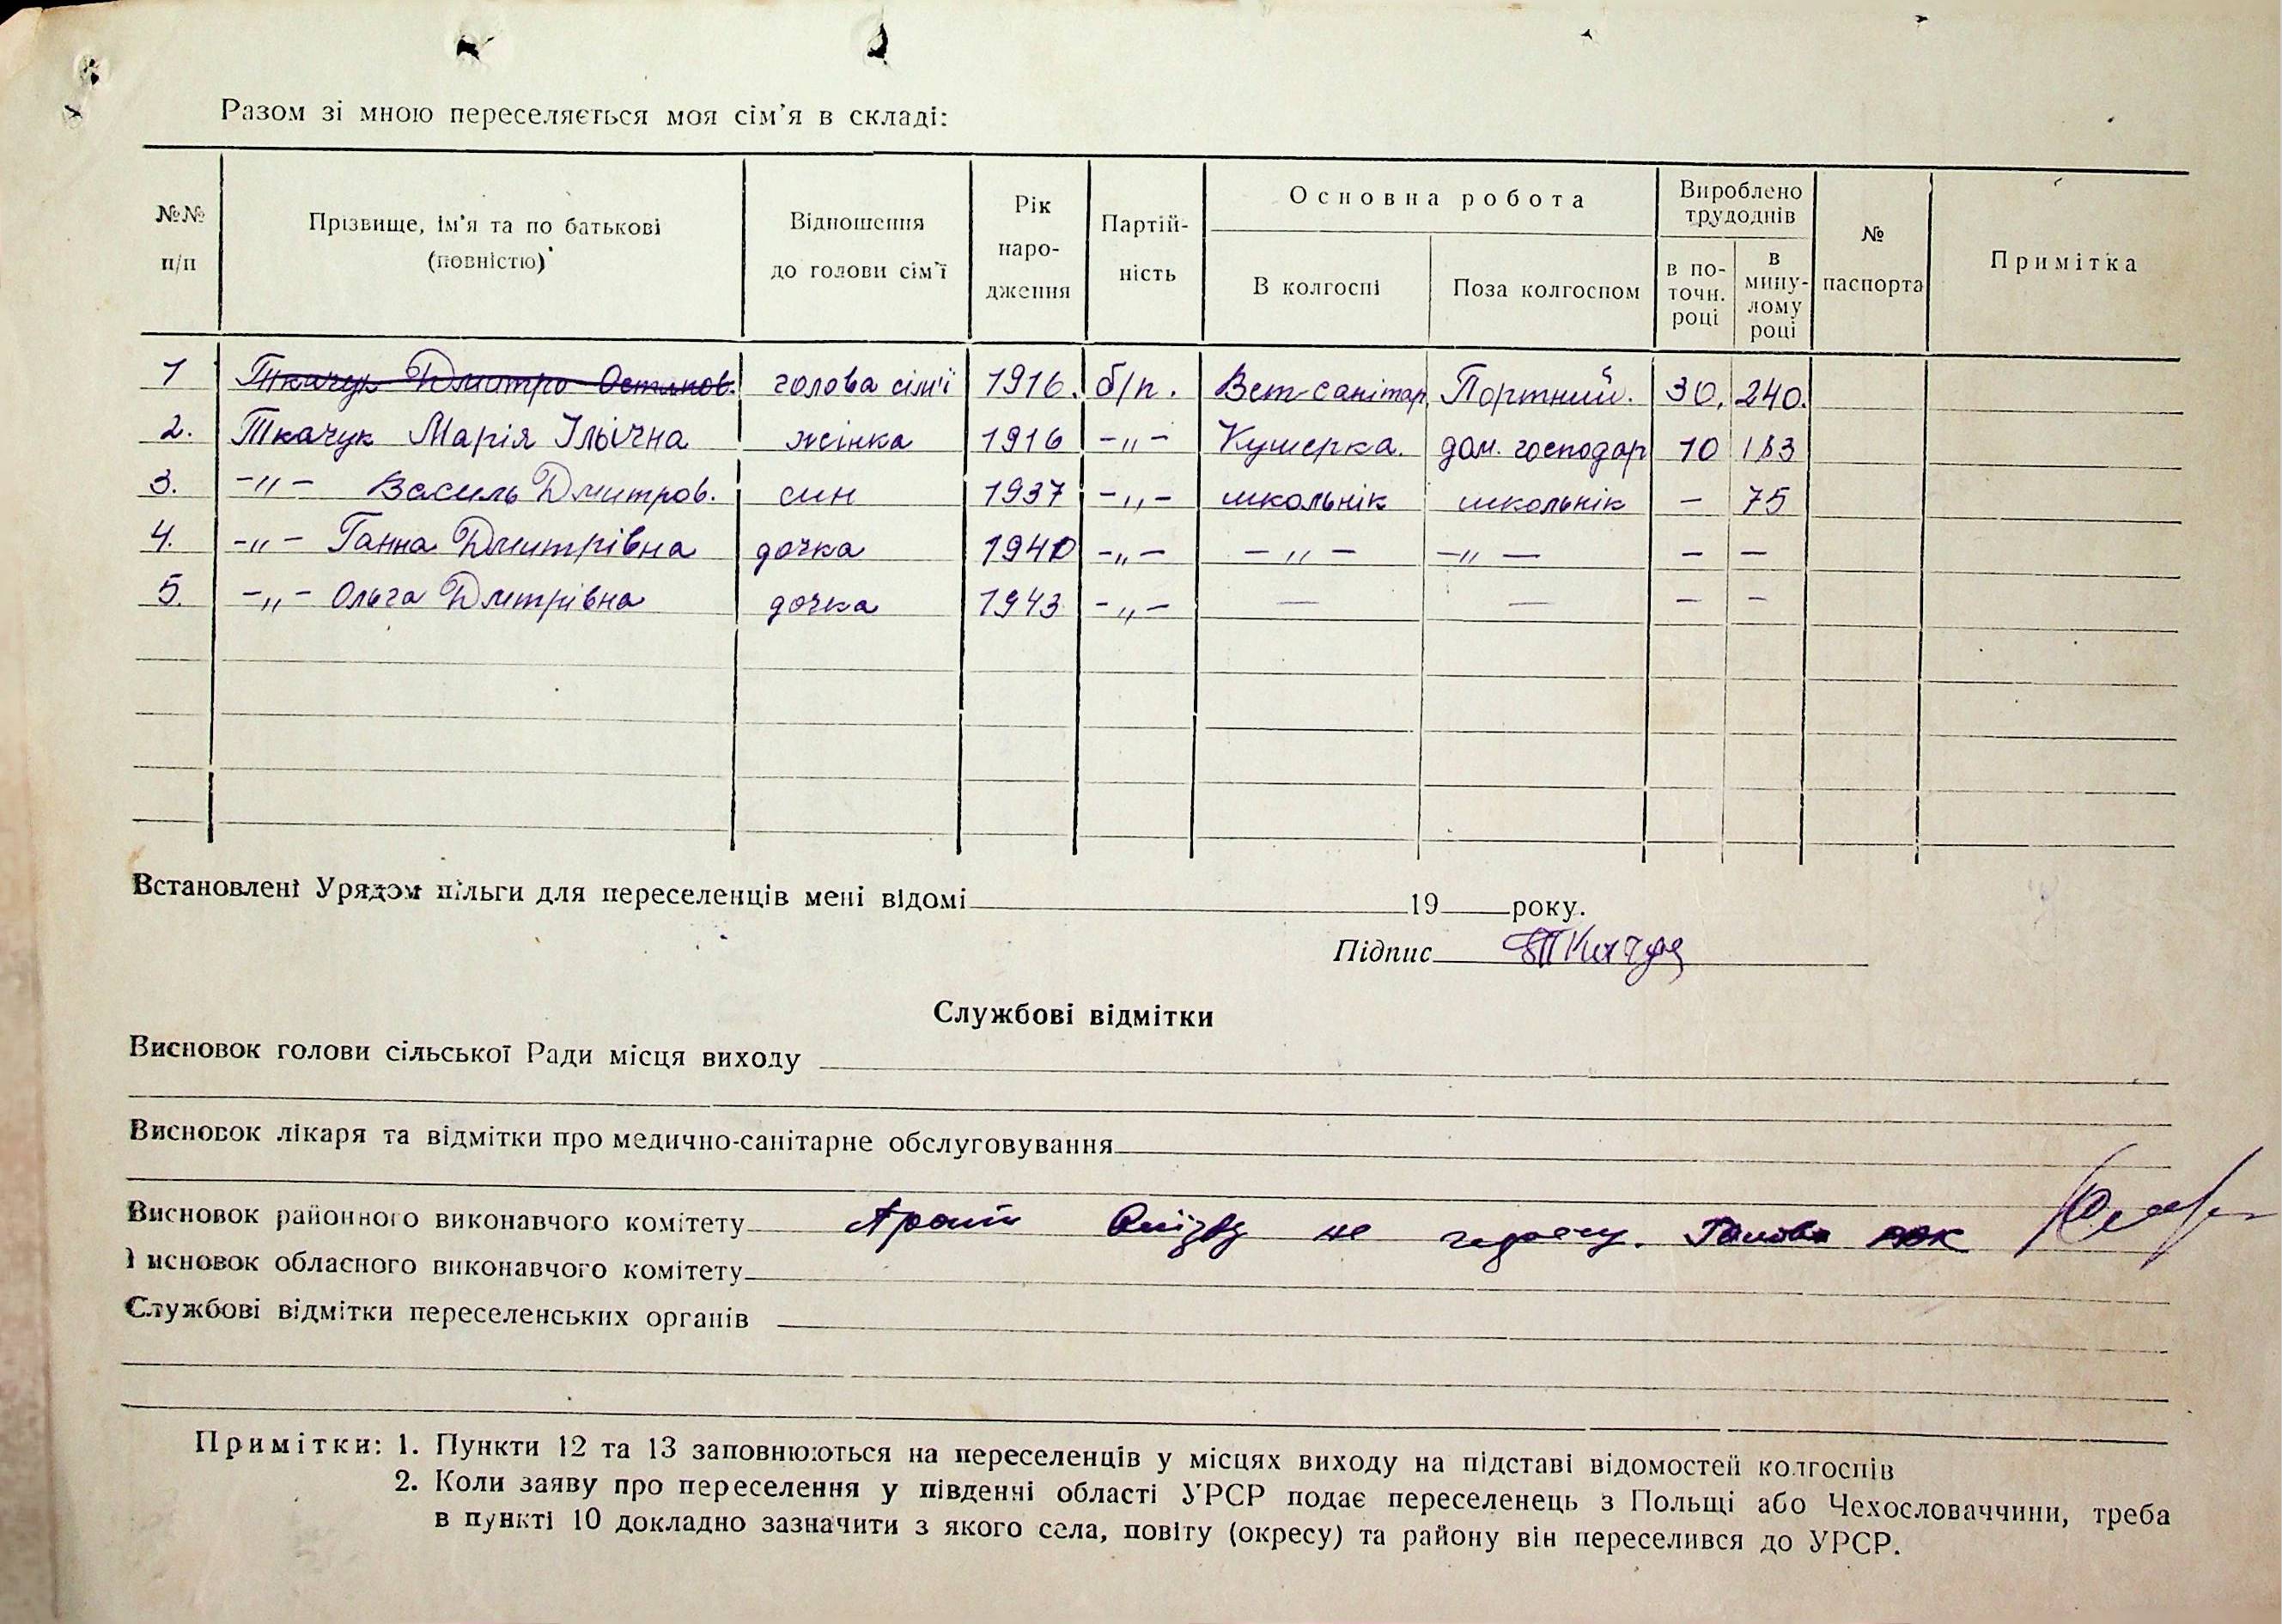 Разом зі мною переселяється моя сім’я в складі:
№№ п/п
Прізвище, ім’я та по батькові (повністю)
Відношення до голови сім’ї
Рік наро- дження
Партій- ність
Основна робота
В колгоспі
Поза колгоспом
Вироблено трудоднів
в по- точн. році
в мину- лому році
№ паспорта
Примітка
1 Ткачук Дмитро Остапов. голова сім'ї 1916. б/п. Вет-санітар Портний. 30. 240.
2. Ткачук Марія Ільічна жінка 1916 -„- Кушерка. дом. господар 10 183
3. -„- Василь Дмитров. син 1937 -„- школьнік школьнік — 75
4. -„- Ганна Дмитрівна дочка 1940 -„- -„- -„- — —
5. -„- Ольга Дмтрівна дочка 1943 -„- — — — —
Встановлені Урядом пільги для переселенців мені відомі 19 року.
Підпис
Службові відмітки
Висновок голови сільської Ради місця виходу
Висновок лікаря та відмітки про медично-санітарне обслуговування
Висновок районного виконавчого комітету не Голова
Висновок обласного виконавчого комітету
Службові відмітки переселенських органів
Примітки: 1. Пункти 12 та 13 заповнюються на переселенців у місцях виходу на підставі відомостей колгоспів
2. Коли заяву про переселення у південні області УРСР подає переселенець з Польщі або Чехословаччини, треба
в пункті 10 докладно зазначити з якого села, повіту (окресу) та району він переселився до УРСР.